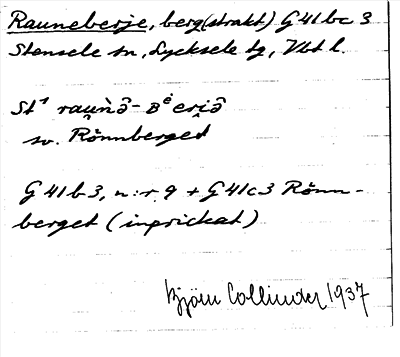 Rauneberje, berg(strakt) G 41 bc 3
Stensele sn, Lycksele tg, Vbt l.
St¹ rau̯ǹô - ʙėeri̯ô
sv. Rönnberget
G 41 b 3, n:r 9 + G 41 c 3 Rönn-
berget (inprickat)
Björn Collinder 1937